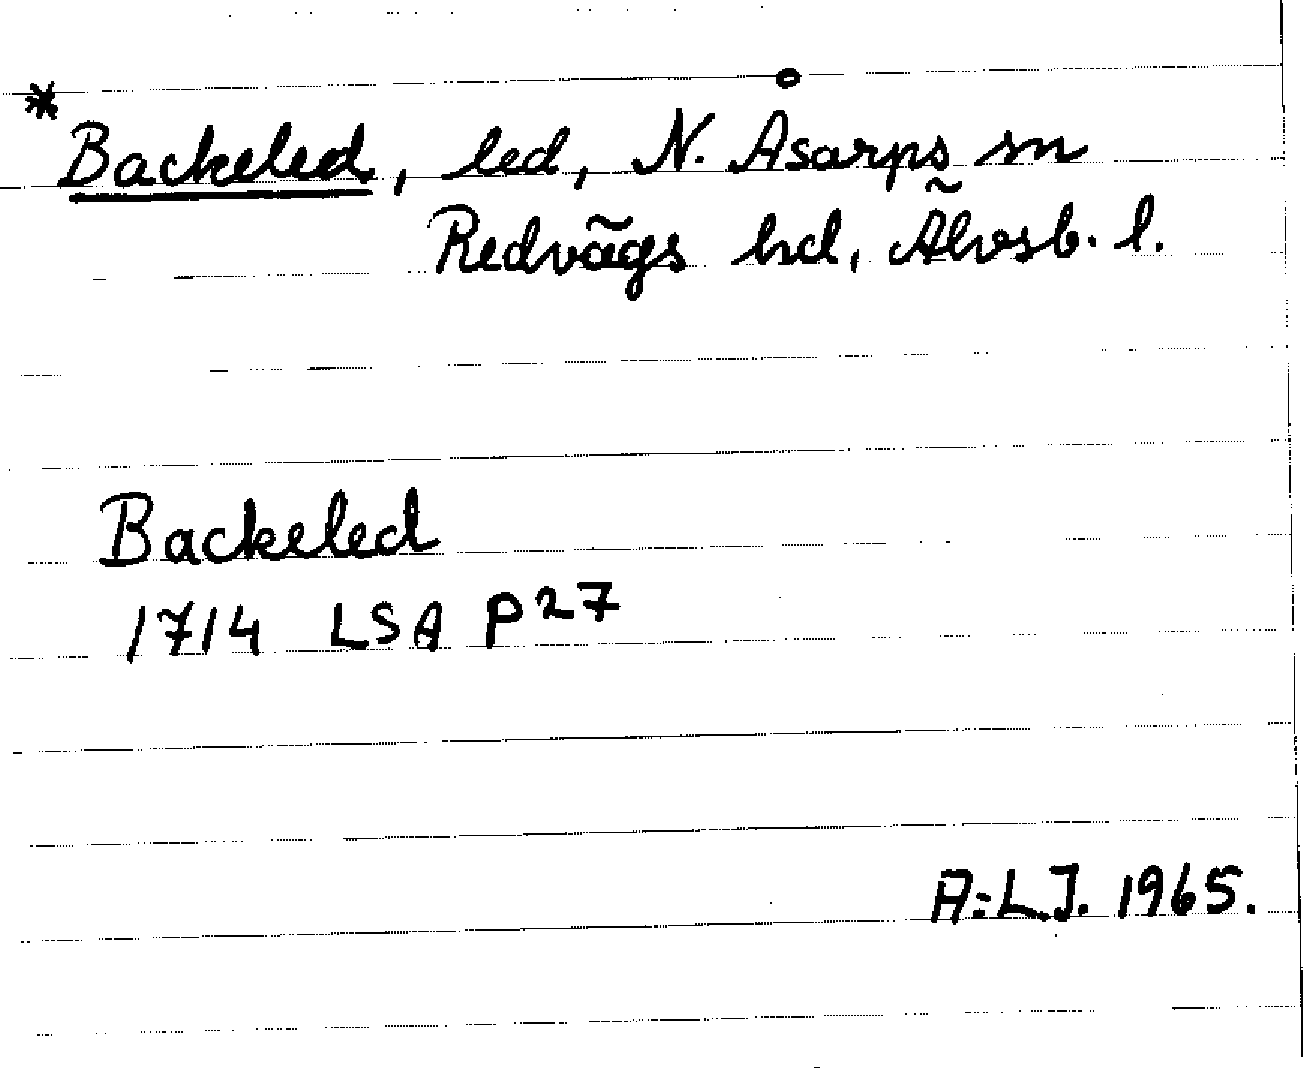 *Backeled, led, N. Åsarps sn
Redvägs hd, Älvsb. l.
Backeled
1714 LSA P27
A-L.J. 1965.